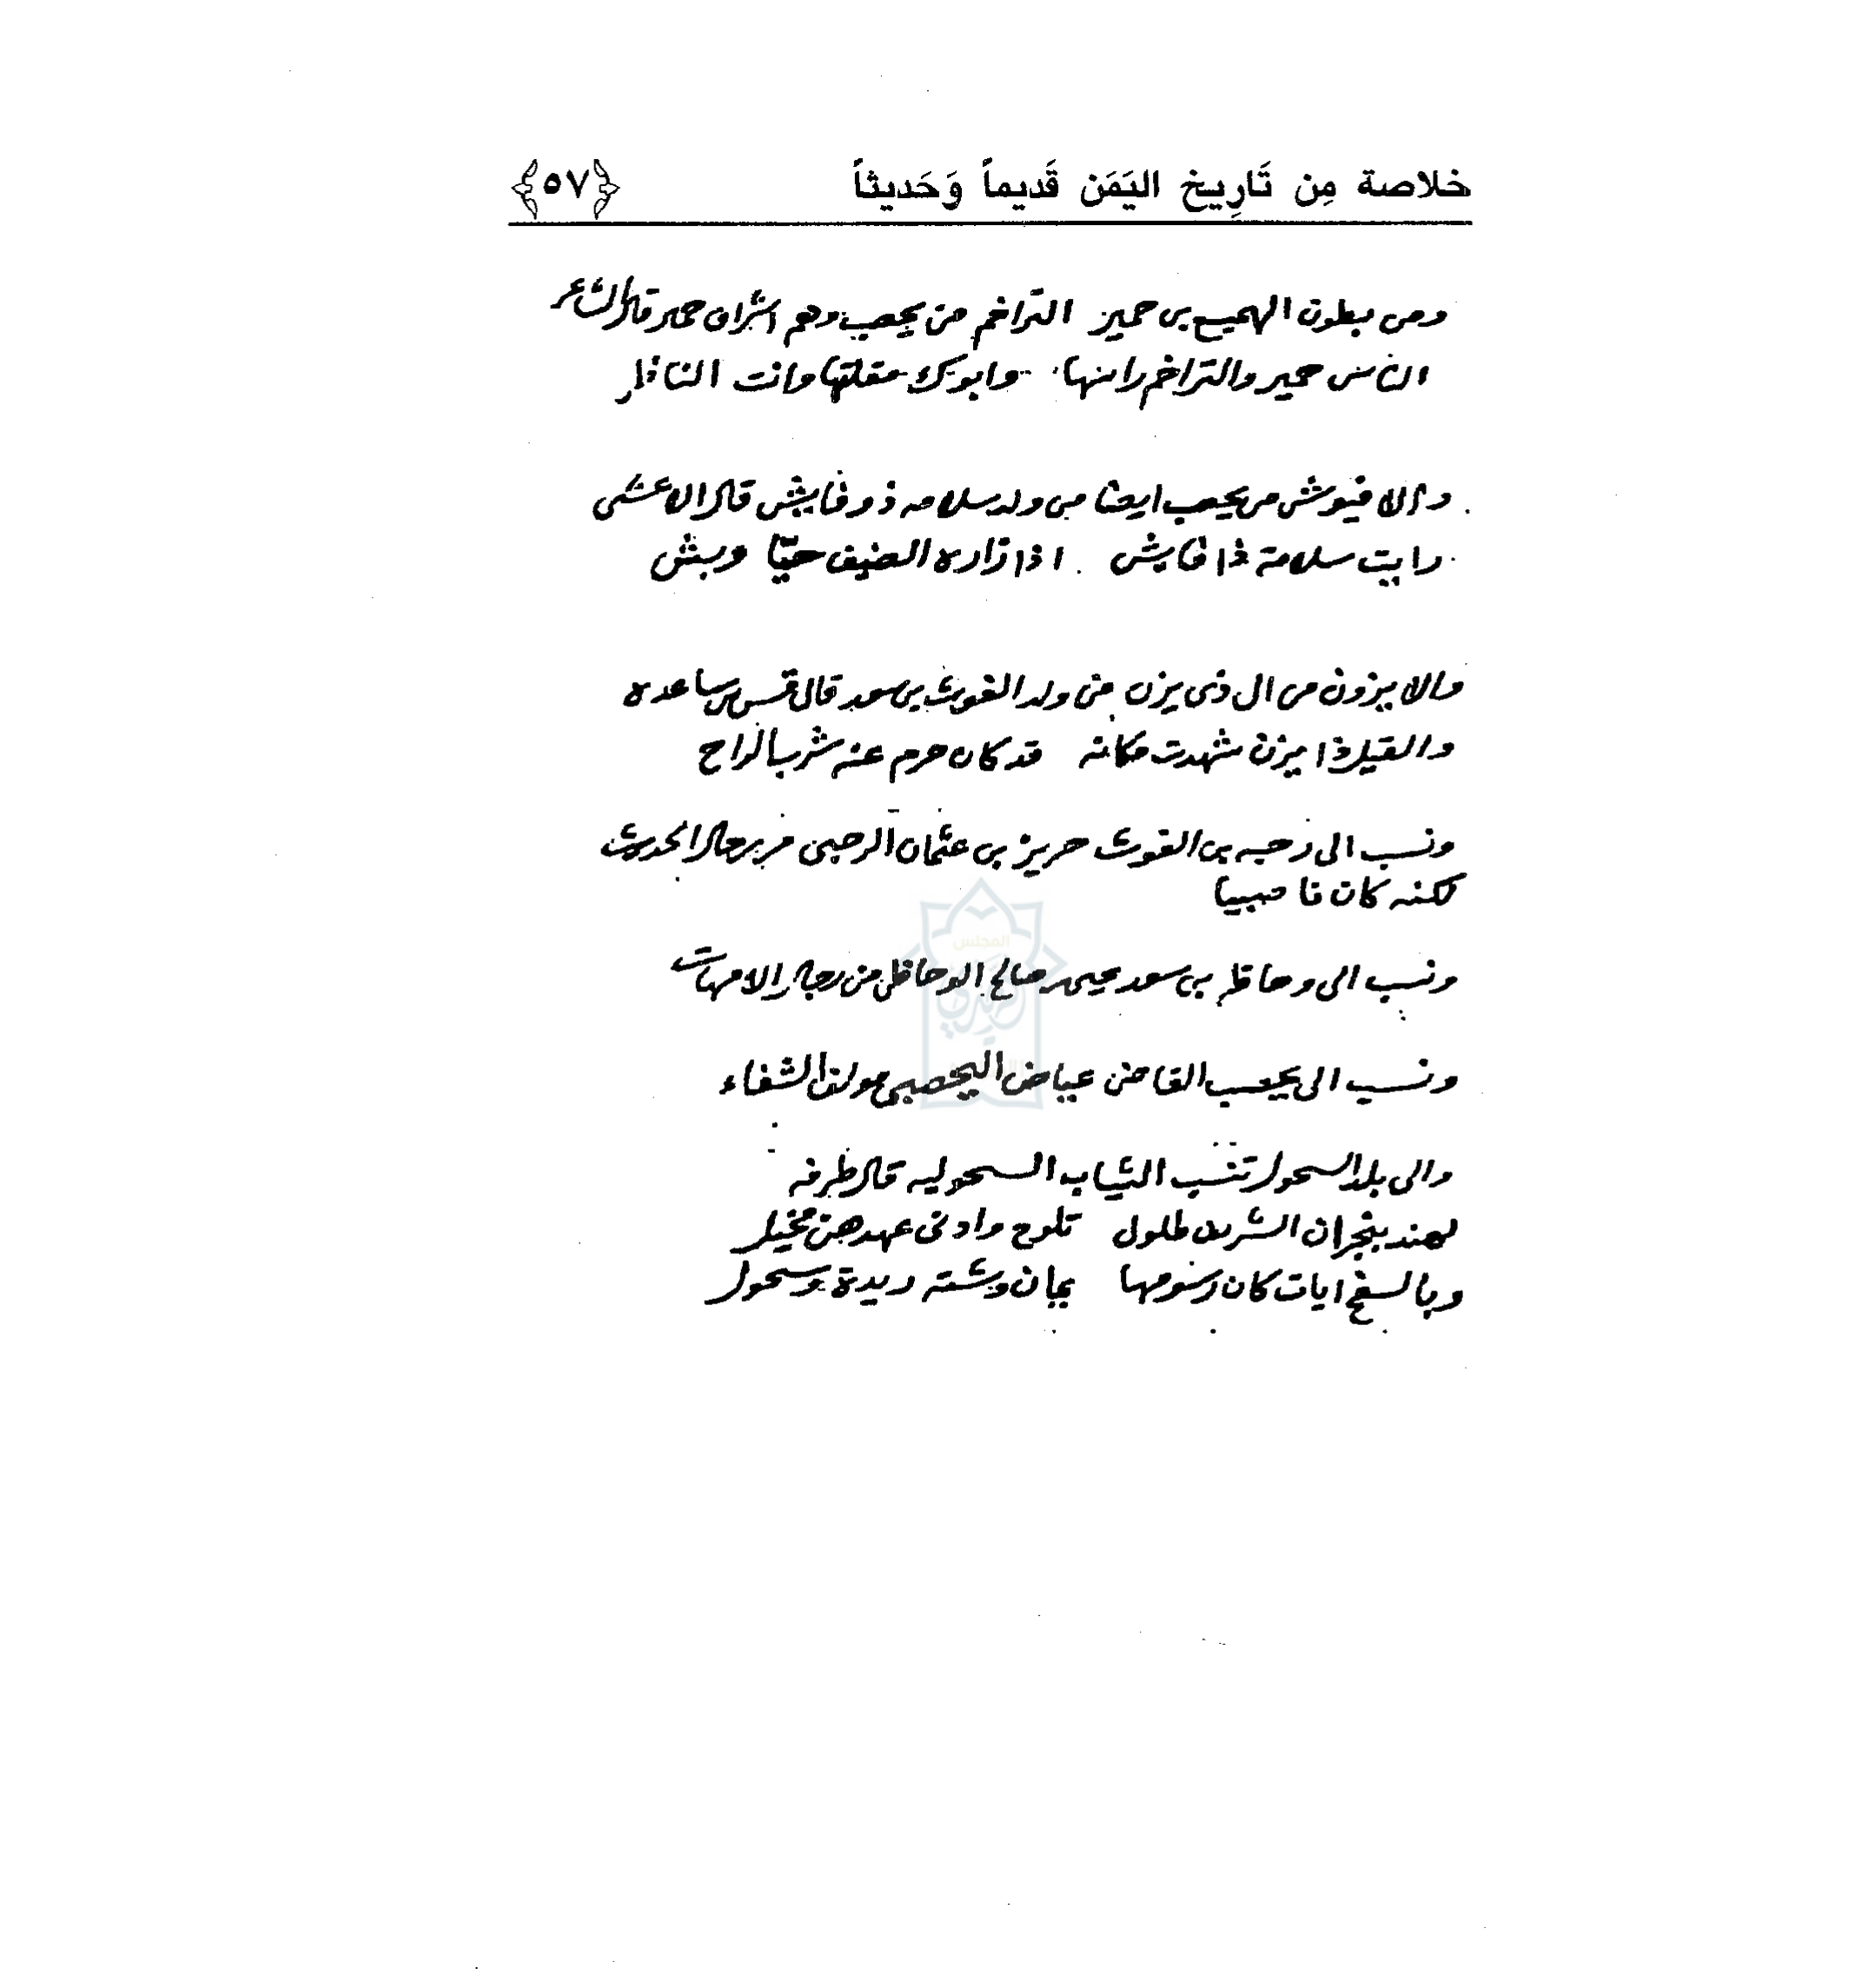 خلاصة مِن تَارِيخ اليَمَن قَديماً وَحَديثاً ﴿٥٧﴾
ومن بطون الهميسع بن حمير التراخم من يحصب وهم اشراف حمير قال الشاعر
الناس حمير والتراخم راسها وابوك مقلتها وانت الناظر
والافيوش من يحصب ايضا من ولد سلامه ذو فايش قال الاعشى
رايت سلامة ذا فايش اذا زاره الضيف حيّا وبش
والايزون من ال ذي يزن من ولد الغوث بن سعد قال قس بن ساعده
والقيل ذا يزن شهدت مكانه قد كان حرم عنه شرب الراح
ونسب الى رحبه بن الغوث حريز بن عثمان الرحبي من رجال الحديث
لكنه كان ناصبيا
ونسب الى وحاظه بن سعد يحيى بن صالح الوحاظي من رجال الامهات
ونسب الى يحصب القاضي عياض اليحصبي مولف الشفاء
والى بلد السحول تنسب الثياب السحوليه قال طرفه
لهند بنجران الشريف طلول تلوح وادنى عهدهن محيل
وبالسفح ايات كان رسومها يمان وشته ريدة وسحول
المجلس